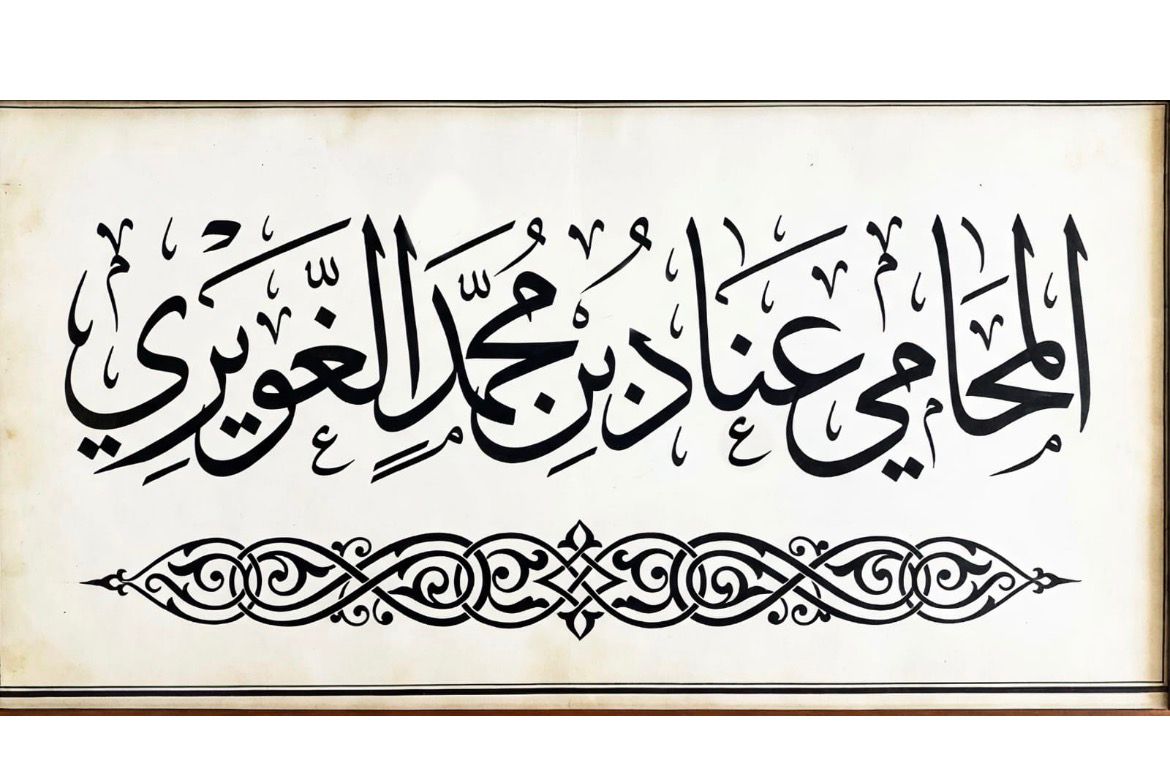 المحامي عناد بن محمد الغويري